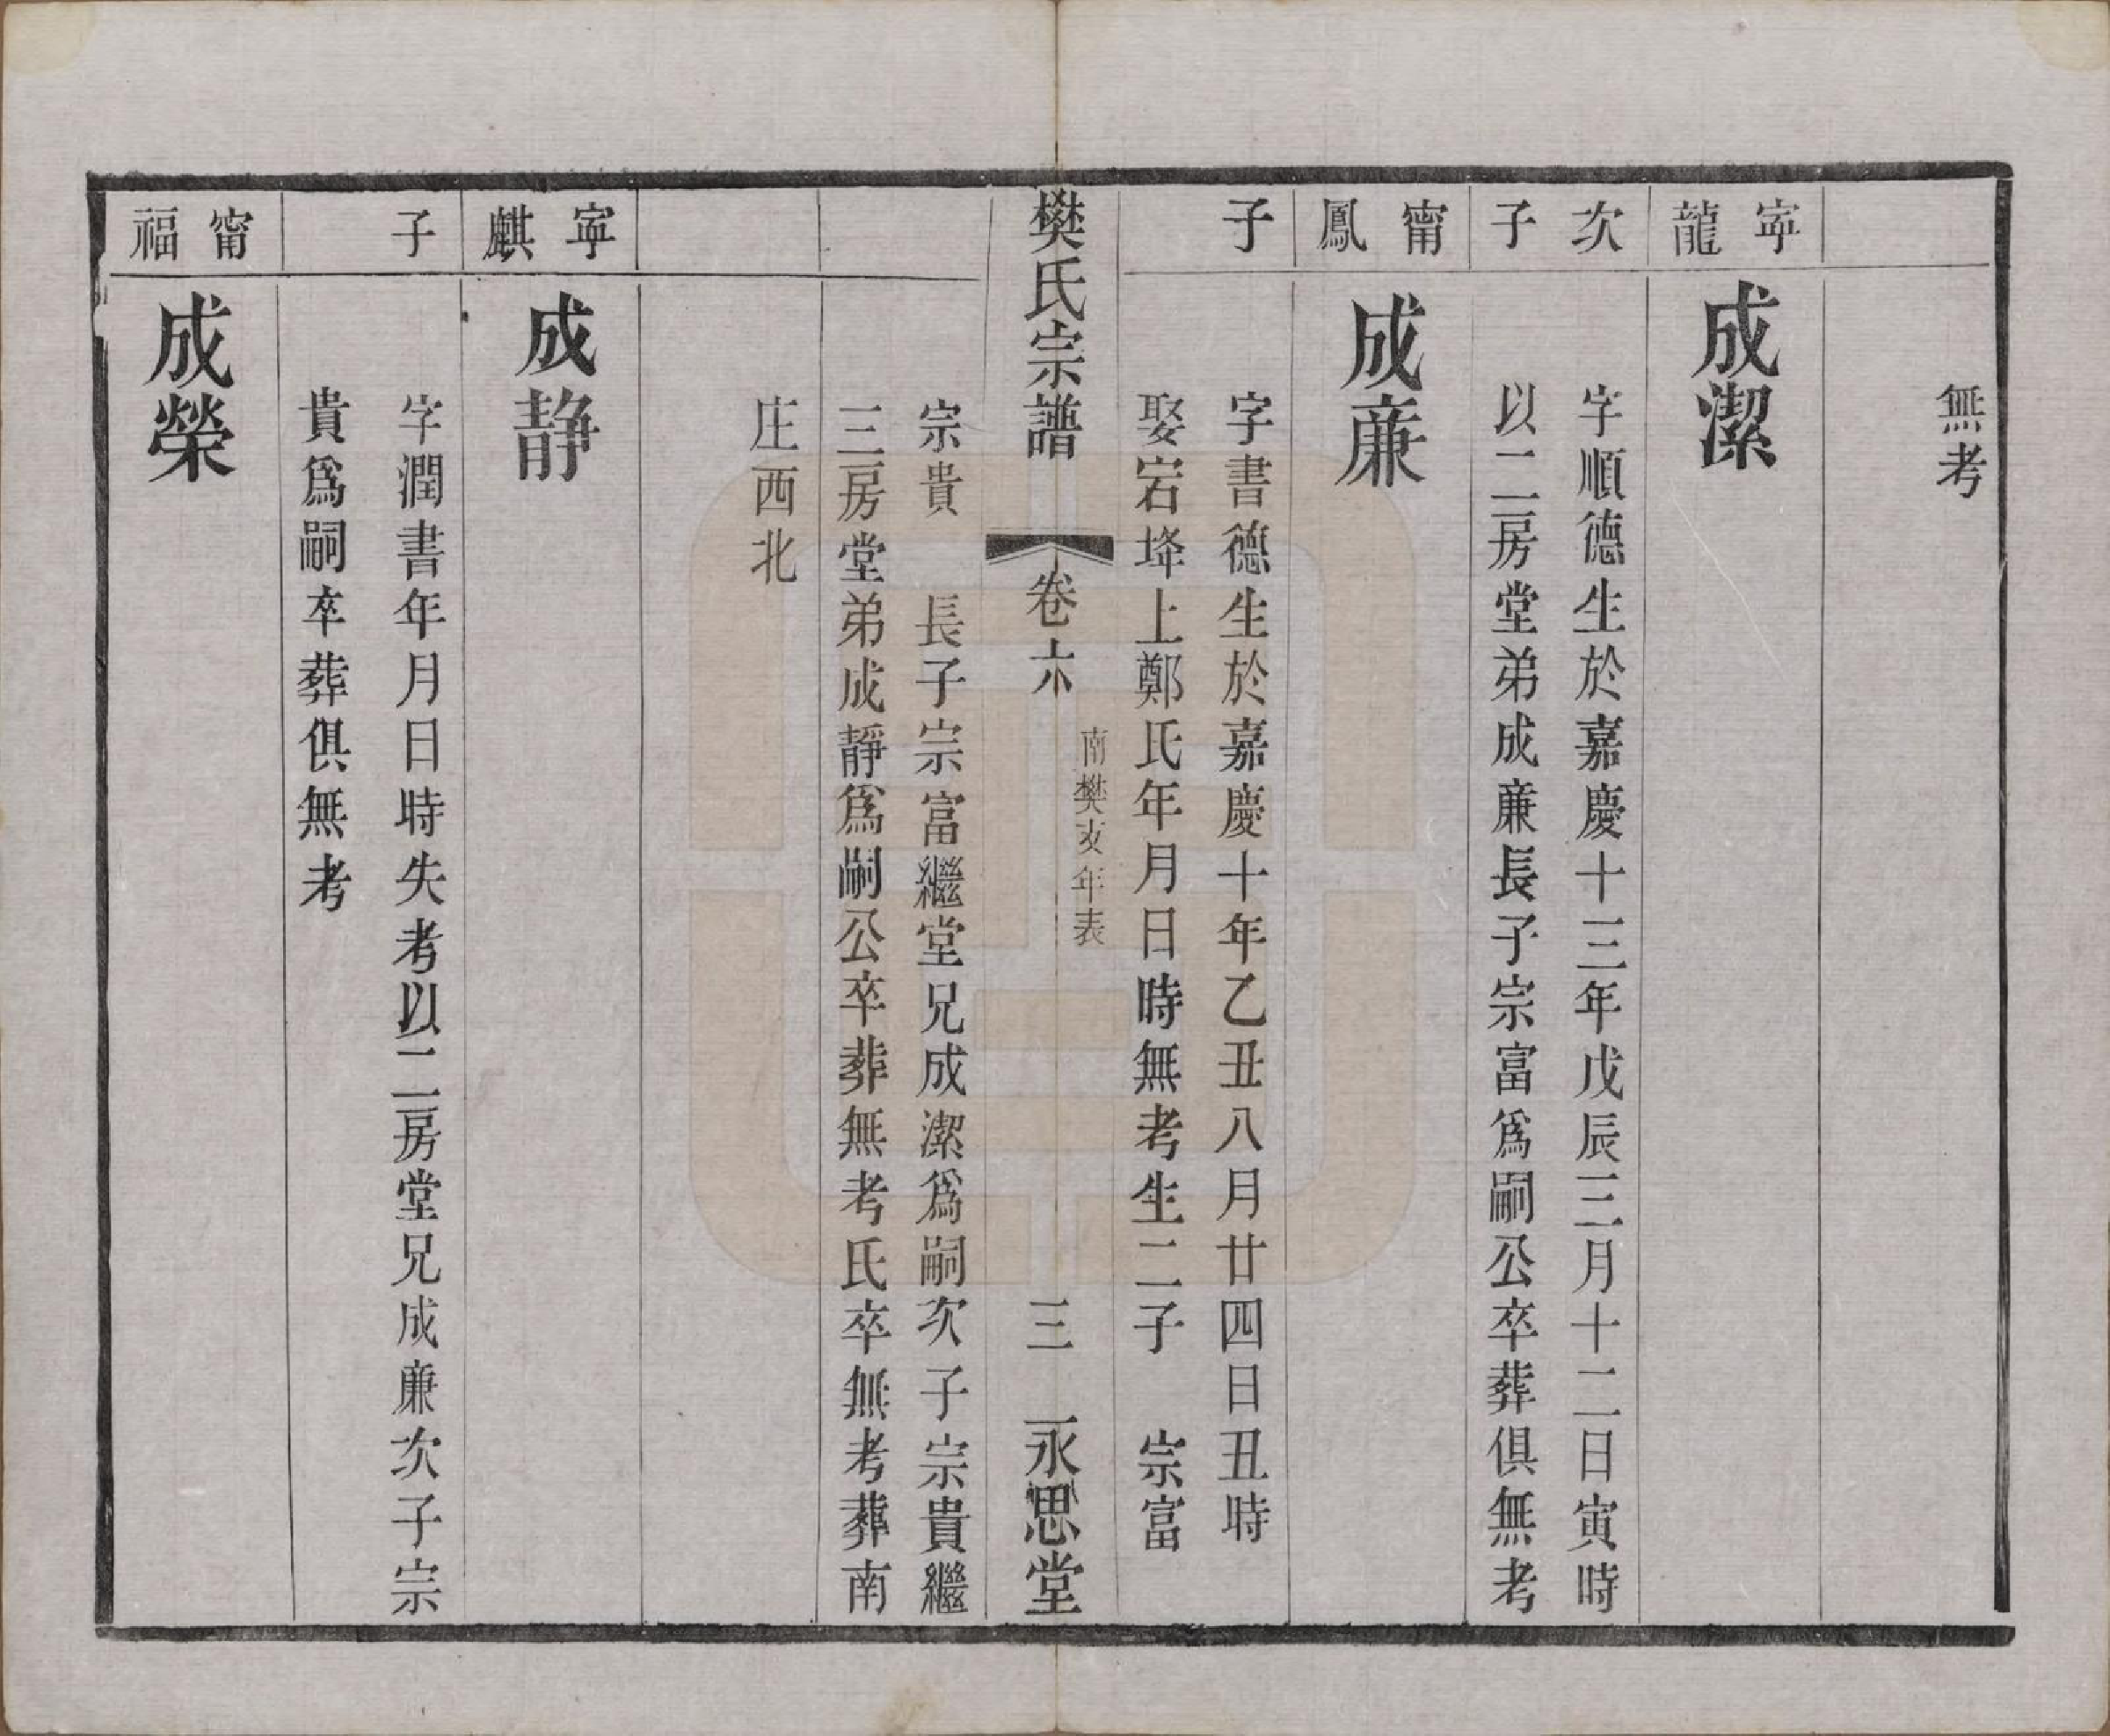 無考
寧龍
成潔
次子
字順德生於嘉慶十三年戊辰三月十二日寅時
以二房堂弟成亷長子宗富爲嗣公卒葬俱無考
甯鳳
成亷
子
字書德生於嘉慶十年乙丑八月廿四日丑時
娶宕埄上鄭氏年月日時無考生二子 宗富
樊氏宗譜 卷六 南樊支年表 三 永思堂
宗貴 長子宗富繼堂兄成潔爲嗣次子宗貴繼
三房堂弟成靜爲嗣公卒葬無考氏卒無考葬南
庄西北
寧麒
成静
子
字潤書年月日時失考以二房堂兄成亷次子宗
貴爲嗣卒葬俱無考
甯福
成榮